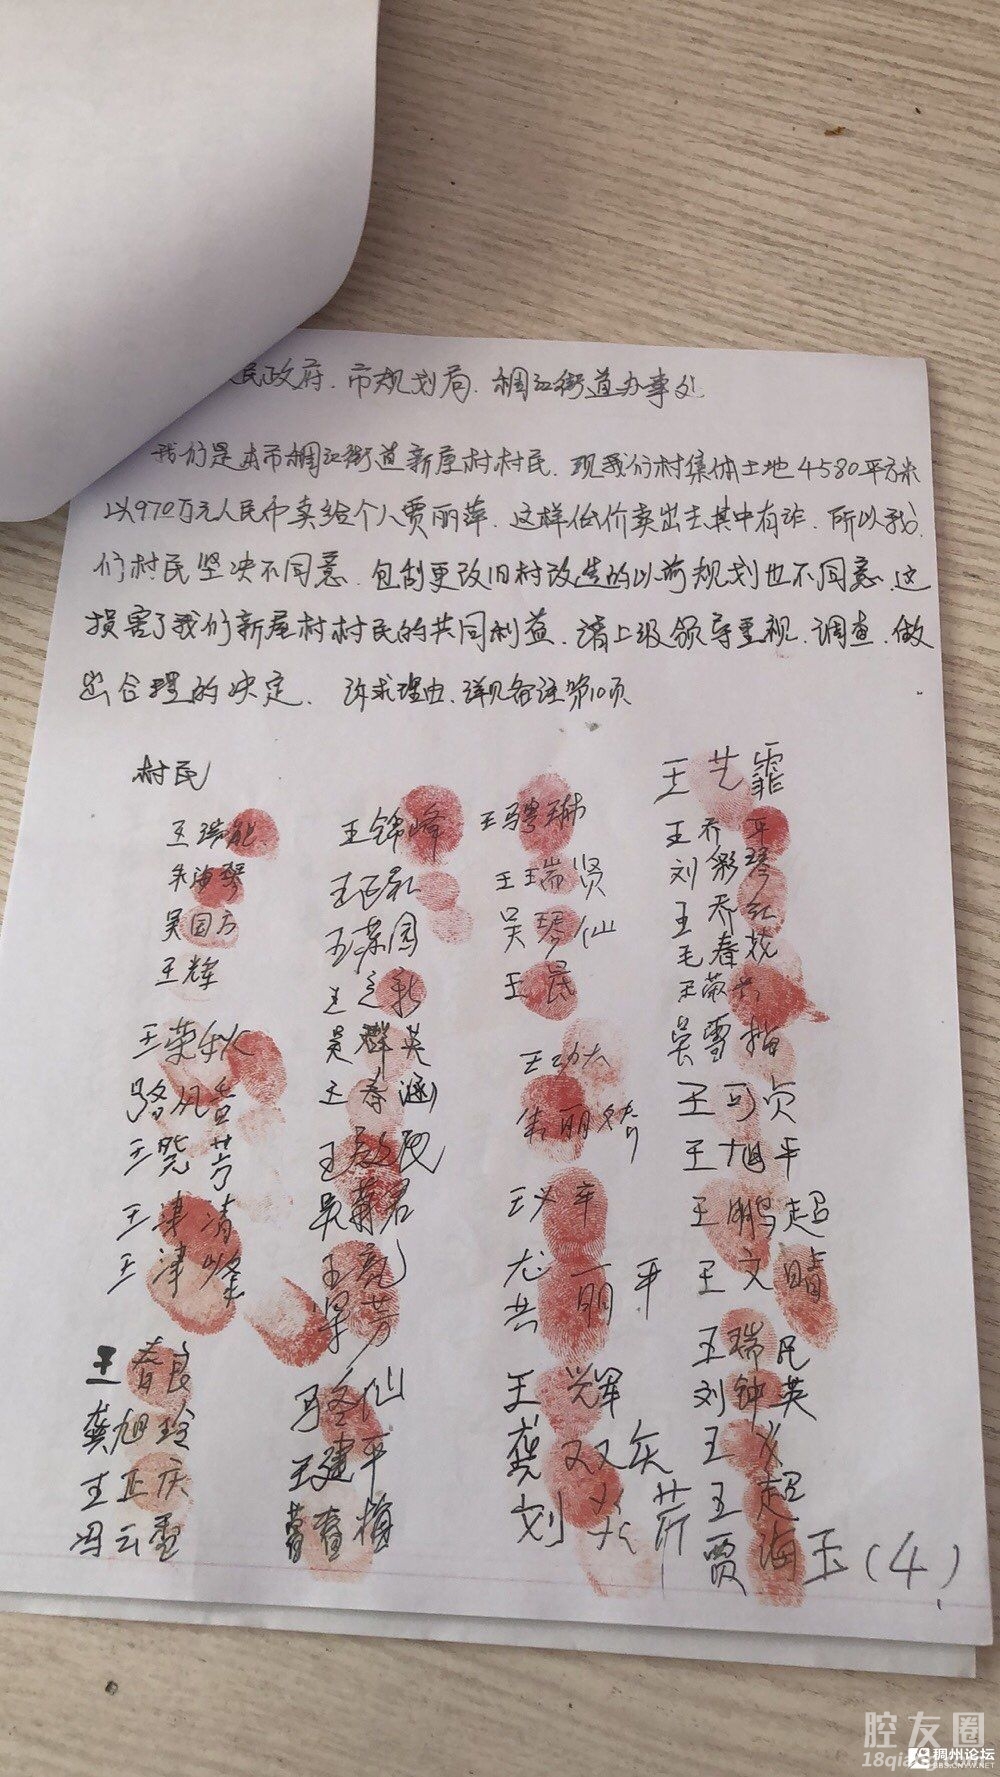 民政府、市规划局、稠江街道办事处
我们是本市稠江街道新屋村村民、现我们村集体土地4580平方米
以970万元人民币卖给个人贾丽萍、这样低价卖出去其中有诈、所以我
们村民坚决不同意、包刮更改旧村改造的以前规划也不同意、这
损害了我们新屋村村民的共同利益、请上级领导重视、调查、做
出合理的决定、诉求理由、详见备注第10页
村民
王瑞能
朱海琴
吴国方
王辉
王荣秋
王芳
王津清
王津峰
王春良
龚旭玲
王正庆
冯云
王锦峰
王荣园
王新
吴群英
王春涵
吴菊君
王亮
芳
仙
王建平
曹春梅
王骋琳
王瑞贤
吴琴仙
王晨
王功大
朱丽
龙
共丽平
王辉
龚双庆
王艺霏
王乔平
刘彩琴
王乔红
毛春花
王荣
吴雪梅
王可贞
王旭平
王鹏超
王文晴
王瑞民
刘钟英
王义
王超
贾海玉(4)
腔友圈
18qiang.com
稠州论坛
BBS.CNYW.NET